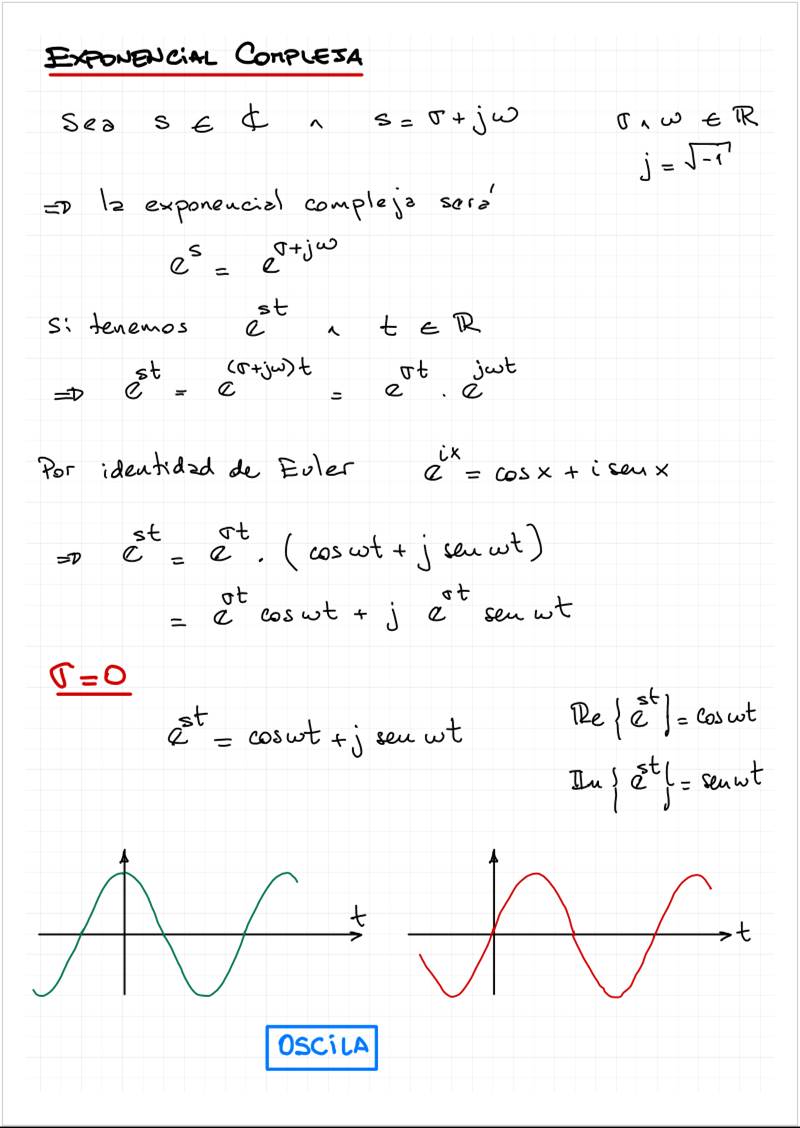 EXPONENCIAL COMPLEJA
Sea s ∈ ℂ ∧ s = σ + jω   σ ∧ ω ∈ ℝ
j = √-1
⇒ la exponencial compleja será
e^s = e^{σ+jω}
Si tenemos e^{st} ∧ t ∈ ℝ
⇒ e^{st} = e^{(σ+jω)t} = e^{σt} . e^{jωt}
Por identidad de Euler   e^{ix} = cos x + i sen x
⇒ e^{st} = e^{σt} . (cos ωt + j sen ωt)
= e^{σt} cos ωt + j e^{σt} sen ωt
σ = 0
e^{st} = cos ωt + j sen ωt
Re{e^{st}} = cos ωt
Im{e^{st}} = sen ωt
t
t
OSCILA